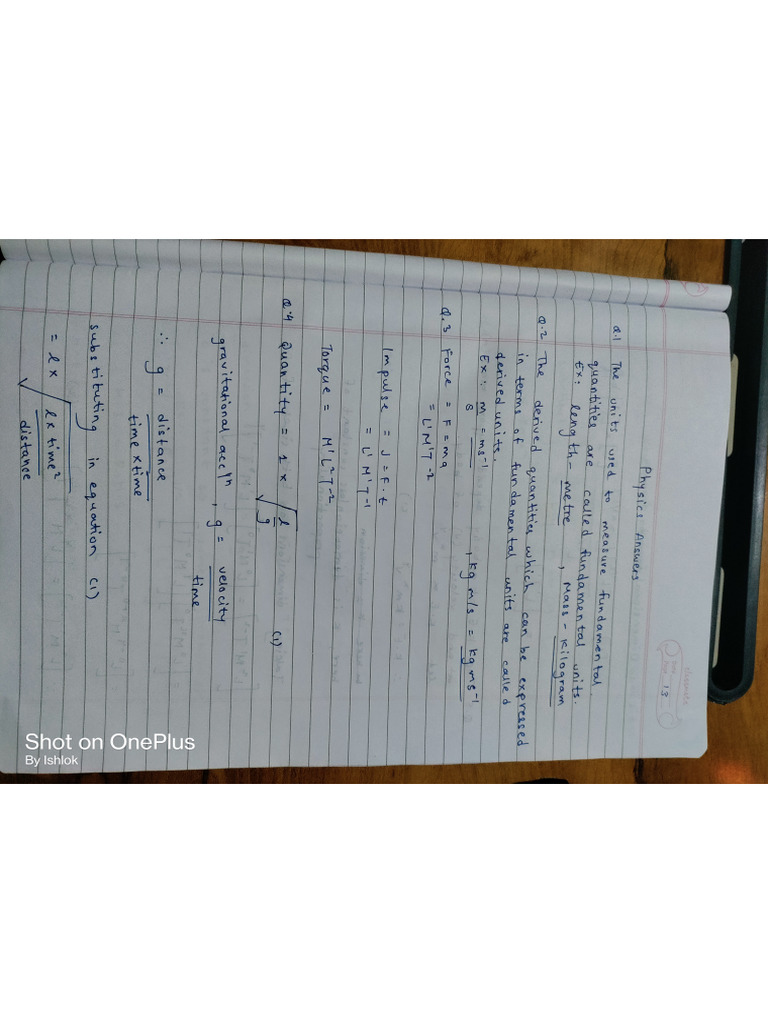 classmate
13
Physics Answers
Q.1 The units used to measure fundamental
quantities are called fundamental units.
Ex: length - metre , Mass - Kilogram
Q.2 The derived quantities which can be expressed
in terms of fundamental units are called
derived units.
Ex :- m/s = ms⁻¹ , kg m/s = kg ms⁻¹
Q.3 Force = F = ma
= L¹M¹T⁻²
Impulse = J = F.t
= L¹M¹T⁻¹
Torque = M¹L²T⁻²
Q.4 Quantity = 1 × √(l/g) (1)
gravitational accln , g = velocity/time
∴ g = distance/time × time
substituting in equation (1)
= l × √(l × time²/distance)
Shot on OnePlus
By Ishlok